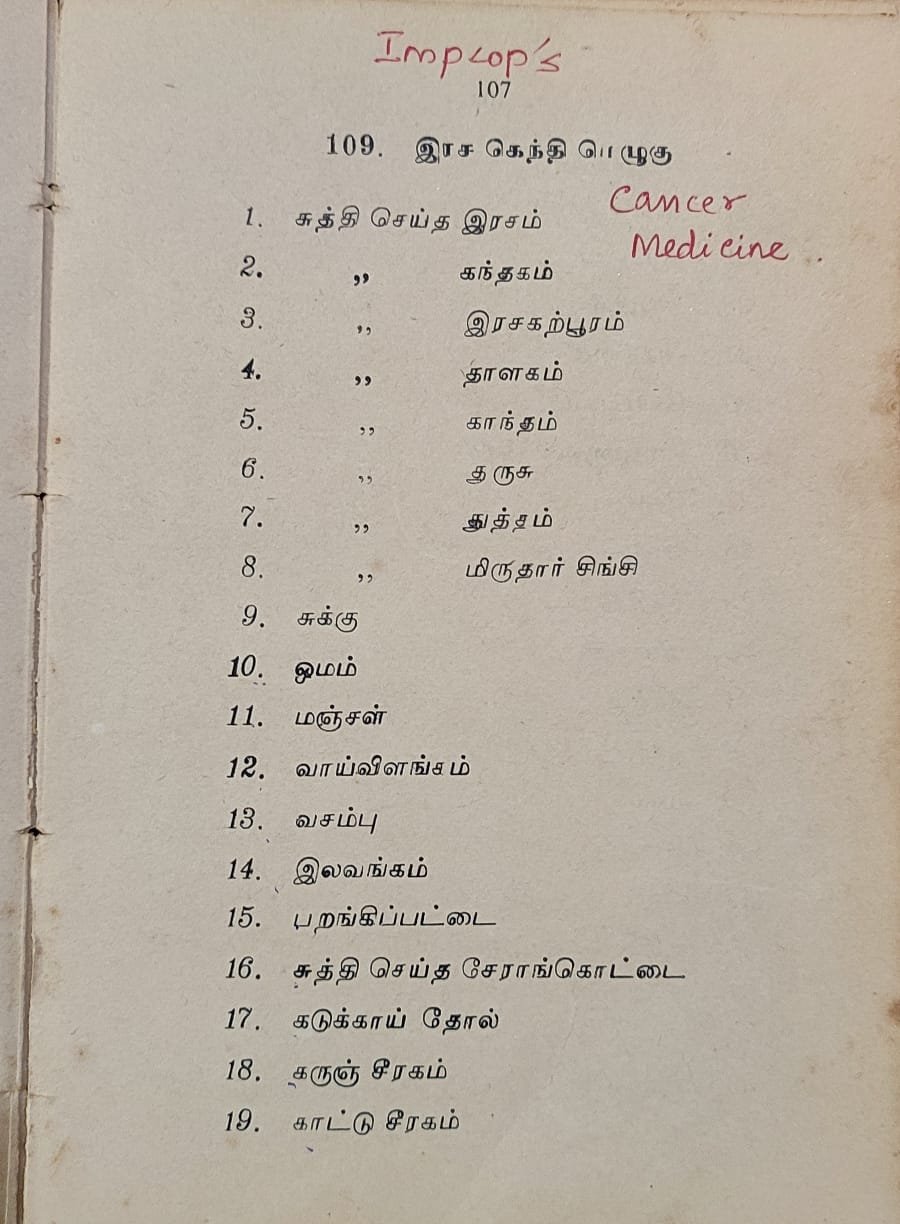 107
109. இரச கெந்தி மெழுகு
Cancer
1. சுத்தி செய்த இரசம்
Medicine.
2. ,, கந்தகம்
3. ,, இரசகற்பூரம்
4. ,, தாளகம்
5. ,, காந்தம்
6. ,, துருசு
7. ,, துத்தம்
8. ,, மிருதார் சிங்சி
9. சுக்கு
10. ஓமம்
11. மஞ்சள்
12. வாய்விளங்கம்
13. வசம்பு
14. இலவங்கம்
15. பறங்கிப்பட்டை
16. சுத்தி செய்த சேராங்கொட்டை
17. கடுக்காய் தோல்
18. கருஞ் சீரகம்
19. காட்டு சீரகம்